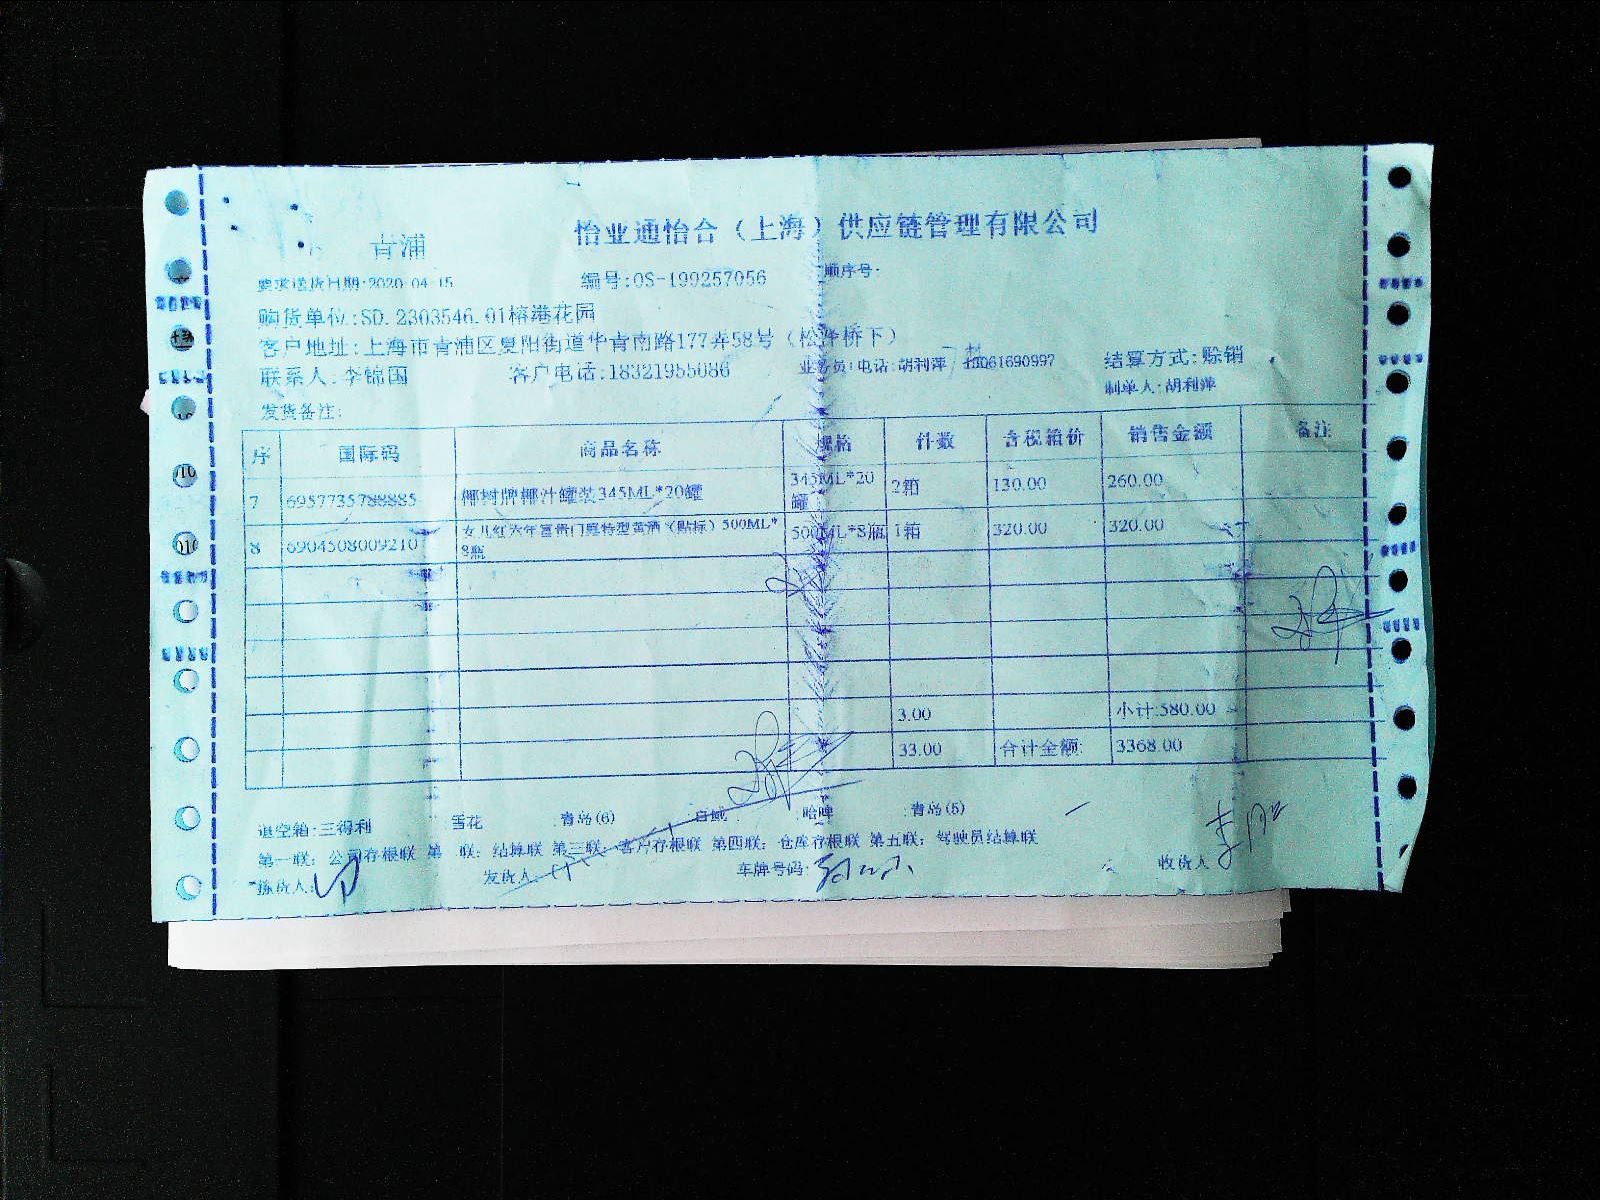 青浦
怡业通怡合（上海）供应链管理有限公司
要求送货日期:2020-04-15 编号:OS-199257056 顺序号:
购货单位:SD.2303546.01榕港花园
客户地址:上海市青浦区夏阳街道华青南路177弄58号（松泽桥下）
联系人:李锦国 客户电话:18321955086 业务员:电话:胡利萍 结算方式:赊销
制单人:胡利萍
发货备注:
序 国际码 商品名称 规格 件数 含税箱价 销售金额 备注
7 6957735788885 椰树牌椰汁罐装345ML*20罐 345ML*20罐 2箱 130.00 260.00
8 6904508009210 女儿红六年富贵门庭特型黄酒（贴标）500ML*8瓶 500ML*8瓶 1箱 320.00 320.00
3.00 小计:580.00
33.00 合计金额: 3368.00
退空箱:三得利 雪花 青岛(6) 哈啤 青岛(5)
第一联: 公司存根联 第 联: 结算联 第三联: 客户存根联 第四联: 仓库存根联 第五联: 驾驶员结算联
拣货人: 发货人: 车牌号码: 收货人